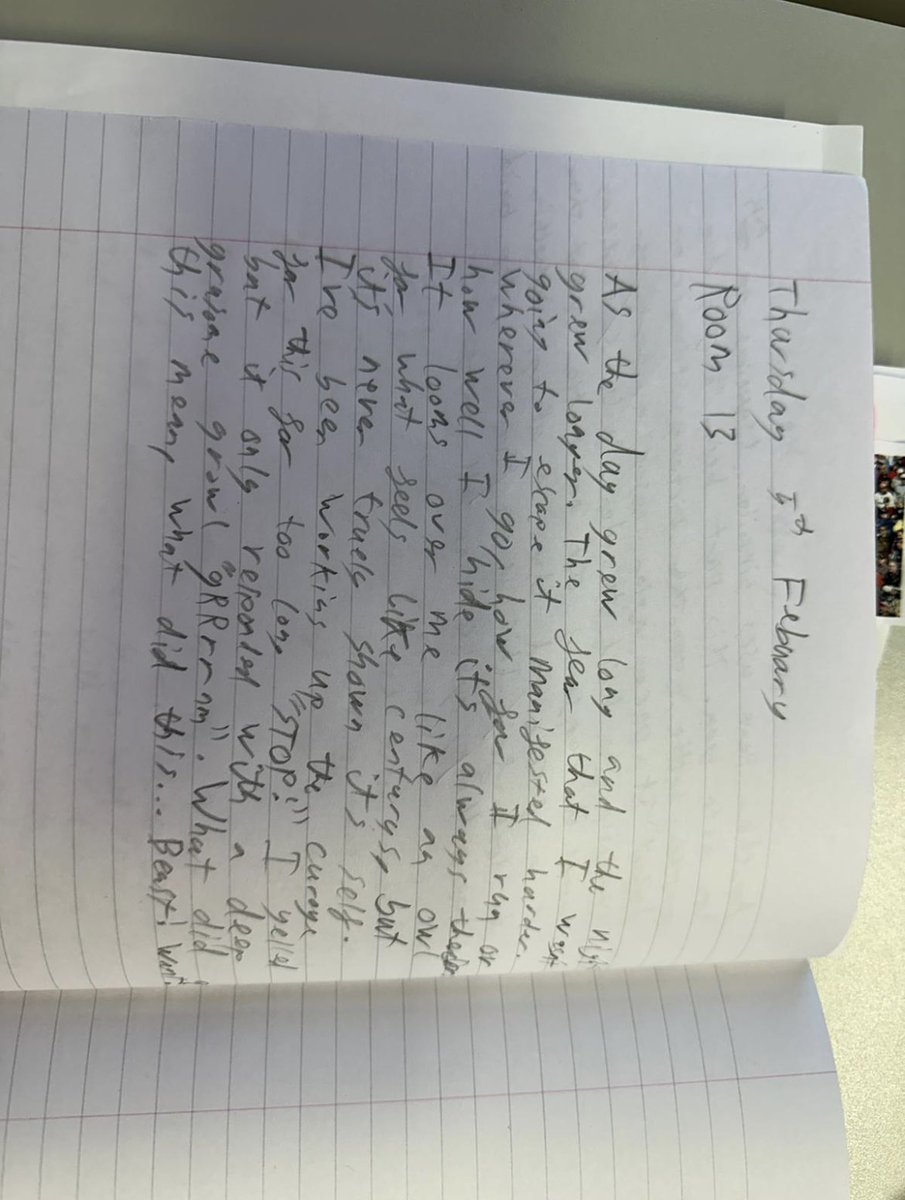 Thursday 5th Febuary
Room 13
As the day grew long and the nig
grew longer. The fear that I was
going to escape it manifested harder.
Wherever I go, how far I run or
how well I hide it's always there
It looms over me like an owl
for what feels like centurys, but
it's never truely shown it's self.
I've been working up the curage
for this for too long "STOP!" I yelled
but it only reponded with a deep
grusome growl "gRRrrnn". What did
this mean, what did this... Beast! Want?